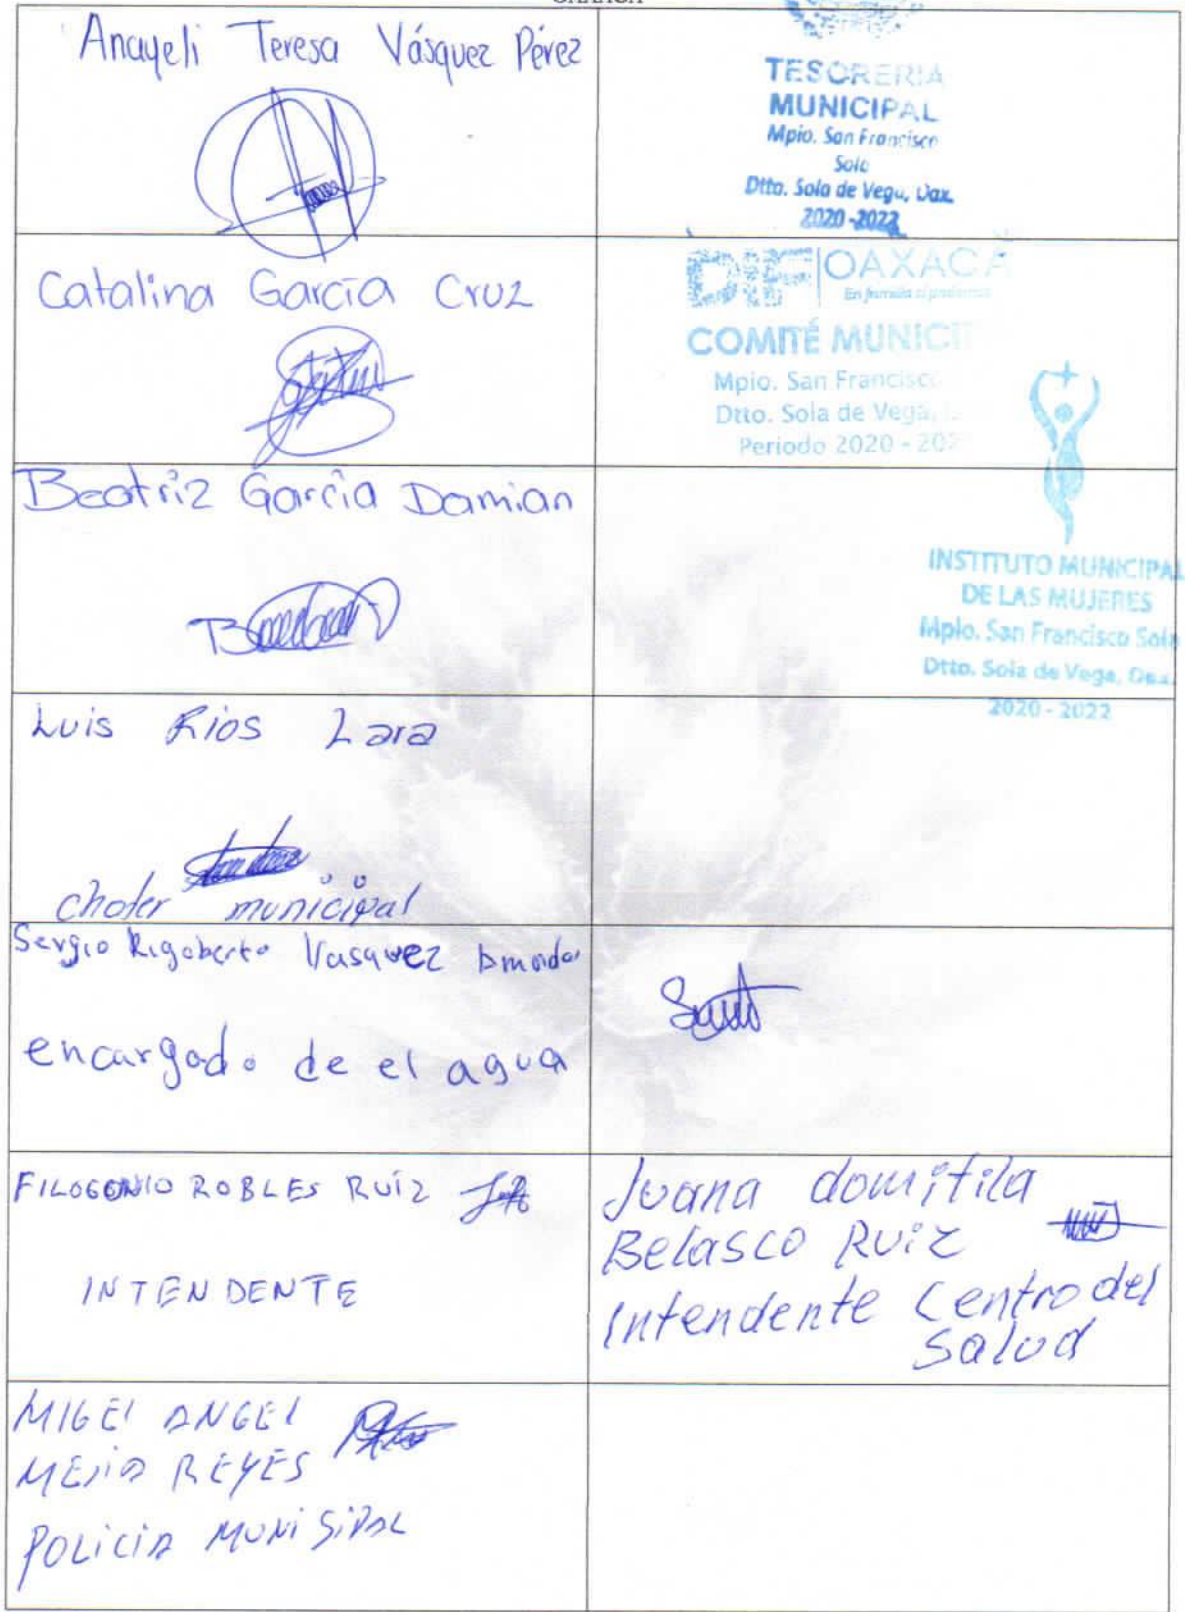 OAXACA
Anayeli Teresa Vásquez Pérez
TESORERIA
MUNICIPAL
Mpio. San Francisco
Sola
Dtto. Sola de Vega, Oax.
2020-2022
Catalina García Cruz
DIF OAXACA
En familia
COMITÉ MUNICI
Mpio. San Francisco
Dtto. Sola de Vega,
Periodo 2020 - 202
Beatriz García Damian
INSTITUTO MUNICIPAL
DE LAS MUJERES
Mpio. San Francisco Sola
Dtto. Sola de Vega, Oax.
2020 - 2022
Luis Rios Lara
chofer municipal
Sergio Rigoberto Vasquez
encargado de el agua
FILOGONIO ROBLES RUÍZ
INTENDENTE
Juana domitila
Belasco Ruiz
Intendente Centro del
Salud
MIGEl ANGEl
MEJIA REYES
POLICIA MUNISIPAL